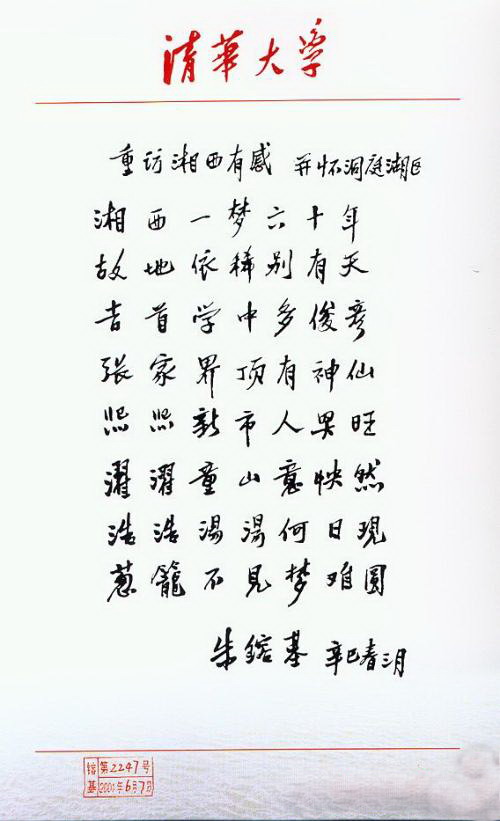 清華大学
重访湘西有感 并怀洞庭湖区
湘西一梦六十年
故地依稀别有天
吉首学中多俊彦
张家界顶有神仙
熙熙新市人畏旺
濯濯童山意怏然
浩浩湯湯何日现
葱籠不见梦难圆
朱鎔基 辛巳春三月
镕基 第2247号
2001年6月7日